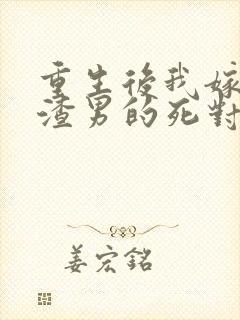 重生後我嫁
渣男的死對
姜宏銘